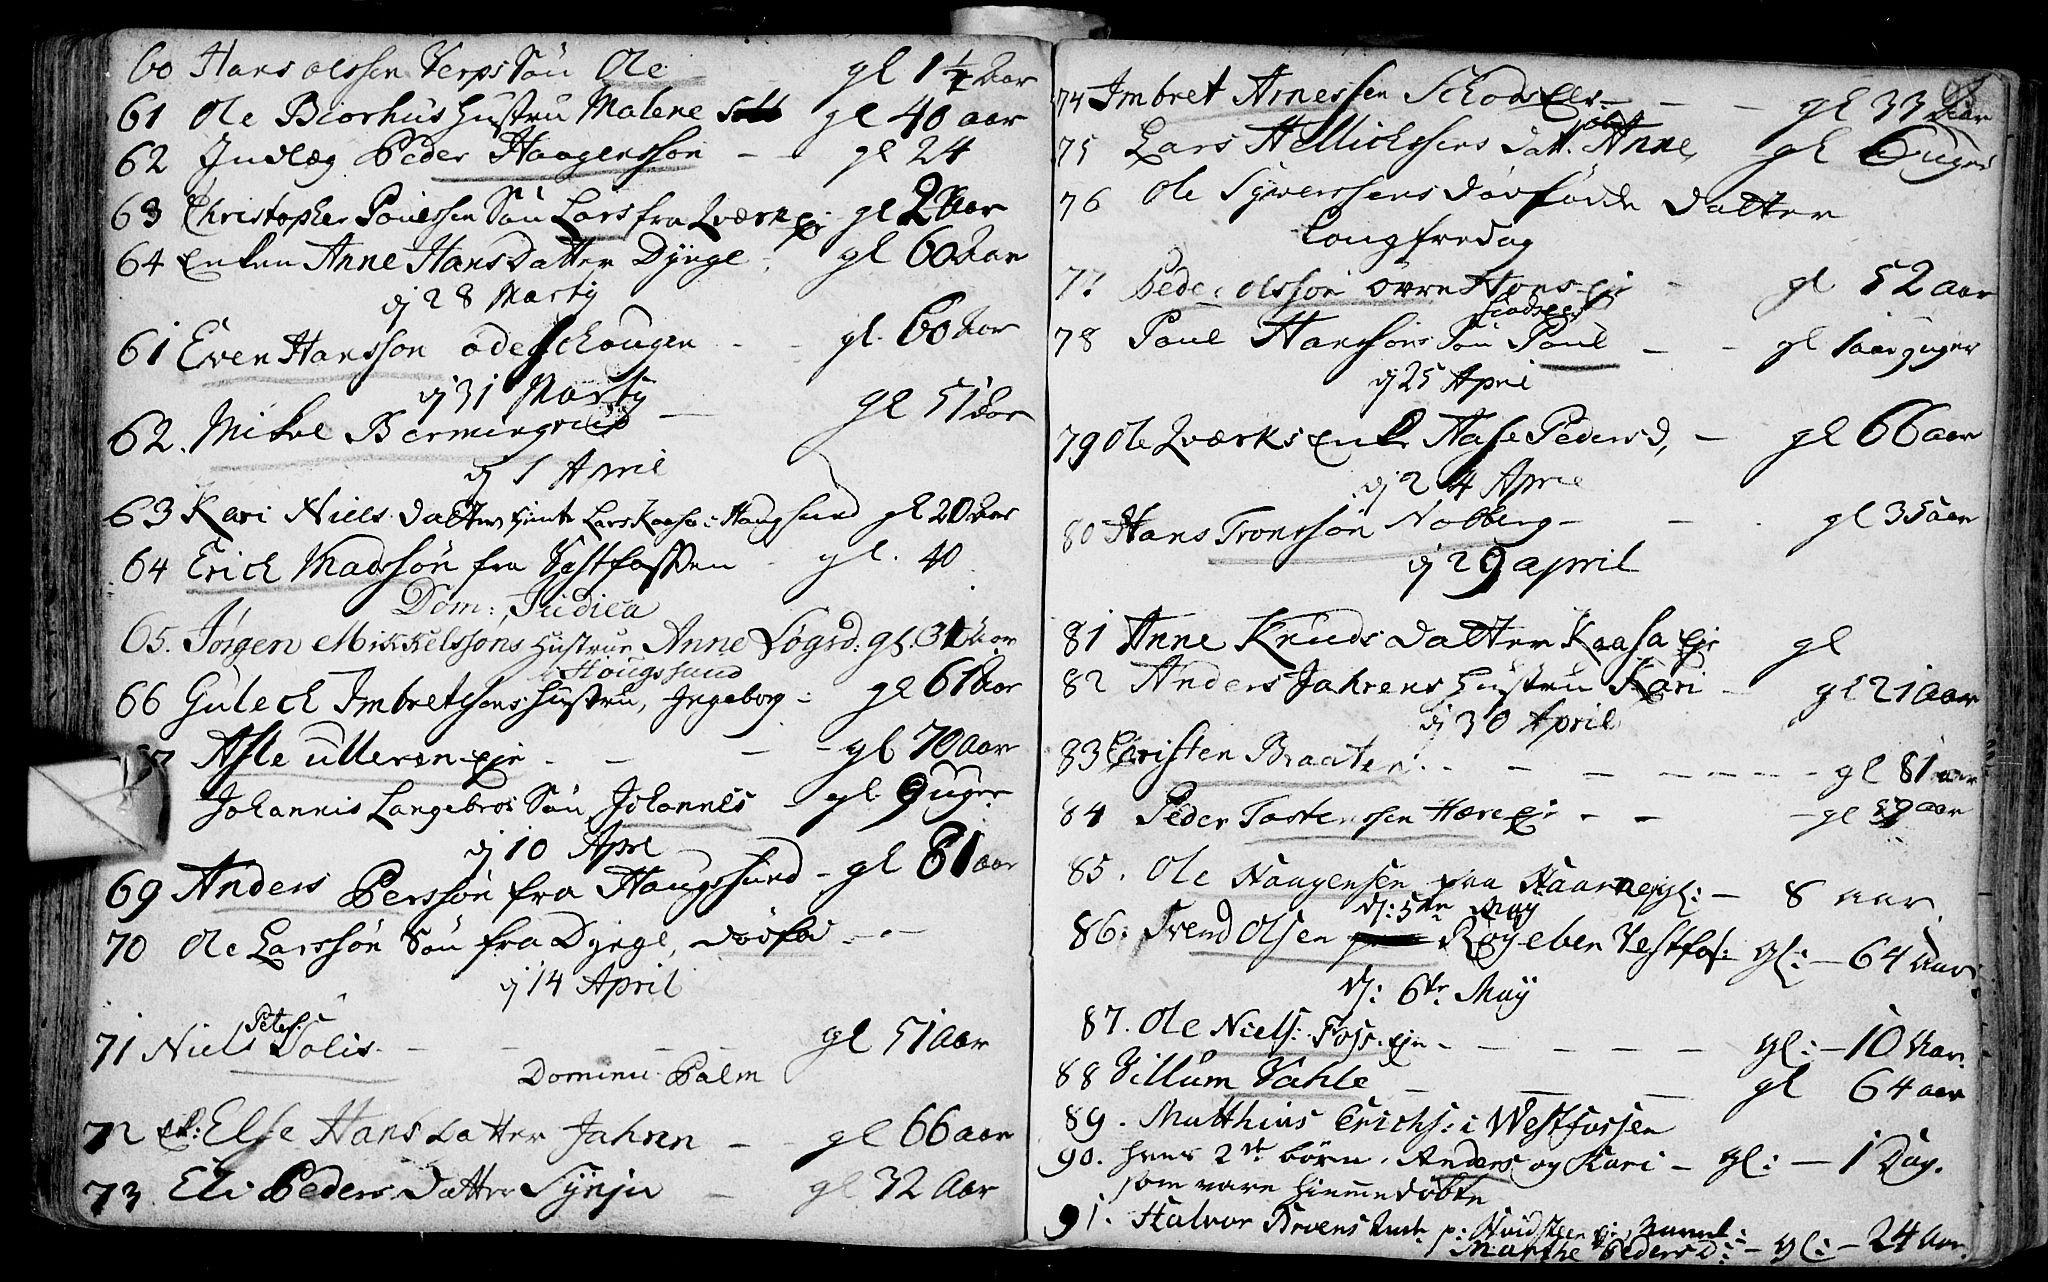 60 Hans olssen Verps Søn Ole gl 1 1/2 Aar
61 Ole Biorhus Hustru Malene gl 40 aar
62 Indlæg Peder Haagenssøn - gl 24
63 Christopher Poulssen Søn Lars fra Qværk gl 2 Aar
64 Enken Anne Hans Datter Dynge gl 60 Aar
dj 28 Marty
61 Even Hanssøn ødeschougen - - gl. 60 Aar
dj 31 Marty
62. Mikel Bermingrud - gl 51 Aar
dj 1 April
63 Kari Niels datter Lars Kaasa i Haugsund gl 20 Aar
64 Erich Madssøn fra Vestfossen gl. 40
Dom: Judica
65. Jørgen Mikkelssøns Hustrue Anne gl. 31 Aar
i Hougssund
66 Guleck Imbretssøns Hustru, Ingeborg - gl 61 Aar
67 Asle ulleren eje - - - gl 70 Aar
Johannis Langebros Søn Johannes - gl 9 Uger
dj 10 Apre
69 Anders Perssøn fra Haugssund - gl 81 aar
70 Ole Larssøn Søn fra Dynge, dødfød - -
dj 14 April
Peters:
71 Niels Solis - - - - gl 51 Aar
Dominic Palm
72 Ek: Else Hans datter Jahren - - gl 66 aar
73 Eli Peders Datter - gl 32 Aar
74 Imbret Arnessen Schods eje - - - gl 33 Aar
75 Lars Hellichssens datt. Anne, gl 6 uger
76 Ole Sywerssens dødfødde datter
Langfredag
77 Peder olssøn øvre Hones eje - gl 52 aar
Skodseje
78 Poul Hanssøns Søn Poul - - gl 1 aar 9 uger
dj 25 April
79 Ole Qværks Enke Aase Pedersd, - gl 66 aar
dj 24 Apre
80 Hans Tronssøn Nobberg - - . gl 35 aar
dj 29 april
81 Anne Knuds datter Kaasa eje gl
82 Anders Jahrens Hustru Kari - gl 21 Aar
dj 30 April
83 Christen Braaten. - - - - - - - gl 81 aar
84 Peder Tostenssen Hære eje - - - gl 59 aar
85. Ole Haagensen fra Haarne gl: - 8 aar
d: 5te May
86: Svend Olsen Røgeben Vestfos: gl: - 64 Aar
d: 6te May
87. Ole Niels: Foss. eje - - - - - gl: - 10 Aar.
88 Villum Vahle - - - gl 64 aar
89. Matthias Erichs: i Westfossen
90. hans 2de børn, Anders og Kari - gl: - 1 Dag.
som vare hiemmedøbte
91. Halvor Broens p: eje, Navnl:
Marthe Peders D: - gl: - 24 Aar.